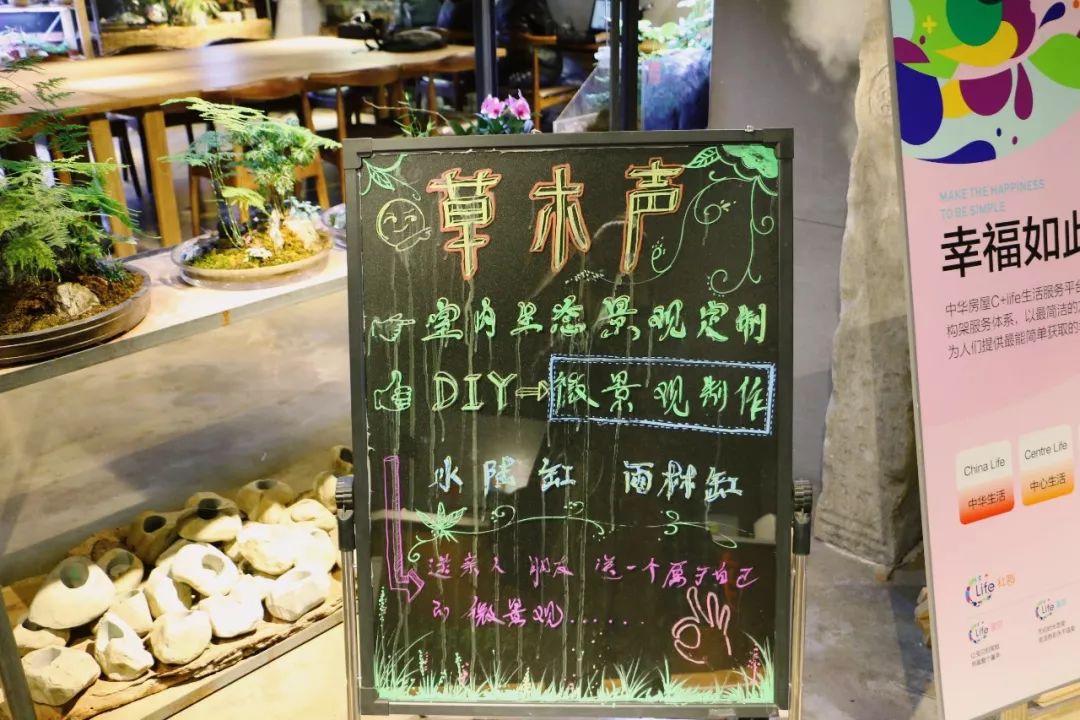 草木声
室内生态景观定制
DIY⇒微景观制作
水陆缸 雨林缸
送亲人 朋友 送一个属于自己
的微景观......
MAKE THE HAPPINESS
TO BE SIMPLE
幸福如此
中华房屋C+life生活服务平台
构架服务体系，以最简洁的
为人们提供最能简单获取的
China Life
中华生活
Centre Life
中心生活
Life 社群
Life
Life